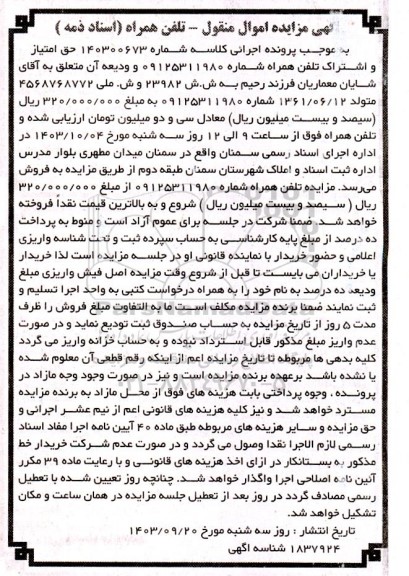 آگهی مزایده اموال منقول - تلفن همراه (اسناد ذمه)
به موجب پرونده اجرائی کلاسه شماره ۱۴۰۳۰۰۶۷۳ حق امتیاز
و اشتراک تلفن همراه شماره ۰۹۱۲۵۳۱۱۹۸۰ و ودیعه آن متعلق به آقای
شایان معماریان فرزند رحیم به ش.ش ۲۳۹۸۲ و ش. ملی ۴۵۶۸۷۶۸۷۷۲
متولد ۱۳۶۱/۰۶/۱۲ شماره ۰۹۱۲۵۳۱۱۹۸۰ به مبلغ ۳۲۰/۰۰۰/۰۰۰ ریال
(سیصد و بیست میلیون ریال) معادل سی و دو میلیون تومان ارزیابی شده و
تلفن همراه فوق از ساعت ۹ الی ۱۲ روز سه شنبه مورخ ۱۴۰۳/۱۰/۰۴ در
اداره اجرای اسناد رسمی سمنان واقع در سمنان میدان مطهری بلوار مدرس
اداره ثبت اسناد و املاک شهرستان سمنان طبقه دوم از طریق مزایده به فروش
می‌رسد. مزایده تلفن همراه شماره ۰۹۱۲۵۳۱۱۹۸۰ از مبلغ ۳۲۰/۰۰۰/۰۰۰
ریال (سیصد و بیست میلیون ریال) شروع و به بالاترین قیمت نقداً فروخته
خواهد شد. ضمناً شرکت در جلسه برای عموم آزاد است و منوط به پرداخت
ده درصد از مبلغ پایه کارشناسی به حساب سپرده ثبت و تحت شناسه واریزی
اعلامی و حضور خریدار یا نماینده قانونی او در جلسه مزایده است لذا خریدار
یا خریداران می بایست تا قبل از شروع وقت مزایده اصل فیش واریزی مبلغ
ودیعه ده درصد به نام خود را به همراه درخواست کتبی به واحد اجرا تسلیم و
ثبت نمایند ضمناً برنده مزایده مکلف است مابه التفاوت مبلغ فروش را ظرف
مدت ۵ روز از تاریخ مزایده به حساب صندوق ثبت تودیع نماید و در صورت
عدم واریز مبلغ مذکور قابل استرداد نبوده و به حساب خزانه واریز می گردد
کلیه بدهی ها مربوطه تا تاریخ مزایده اعم از اینکه رقم قطعی آن معلوم شده
یا نشده باشد برعهده برنده مزایده است و نیز در صورت وجود وجه مازاد در
پرونده، وجوه پرداختی بابت هزینه های فوق از محل مازاد به برنده مزایده
مسترد خواهد شد و نیز کلیه هزینه های قانونی اعم از نیم عشر اجرائی و
حق مزایده و سایر هزینه های مربوطه طبق ماده ۴۰ آیین نامه اجرا مفاد اسناد
رسمی لازم الاجرا نقدا وصول می گردد و در صورت عدم شرکت خریدار خط
مذکور به بستانکار در ازای اخذ هزینه های قانونی و با رعایت ماده ۳۹ مکرر
آئین نامه اصلاحی اجرا واگذار خواهد شد. چنانچه روز تعیین شده با تعطیل
رسمی مصادف گردد در روز بعد از تعطیل جلسه مزایده در همان ساعت و مکان
تشکیل خواهد شد.
تاریخ انتشار: روز سه شنبه مورخ ۱۴۰۳/۰۹/۲۰
۱۸۳۷۹۲۴ شناسه آگهی